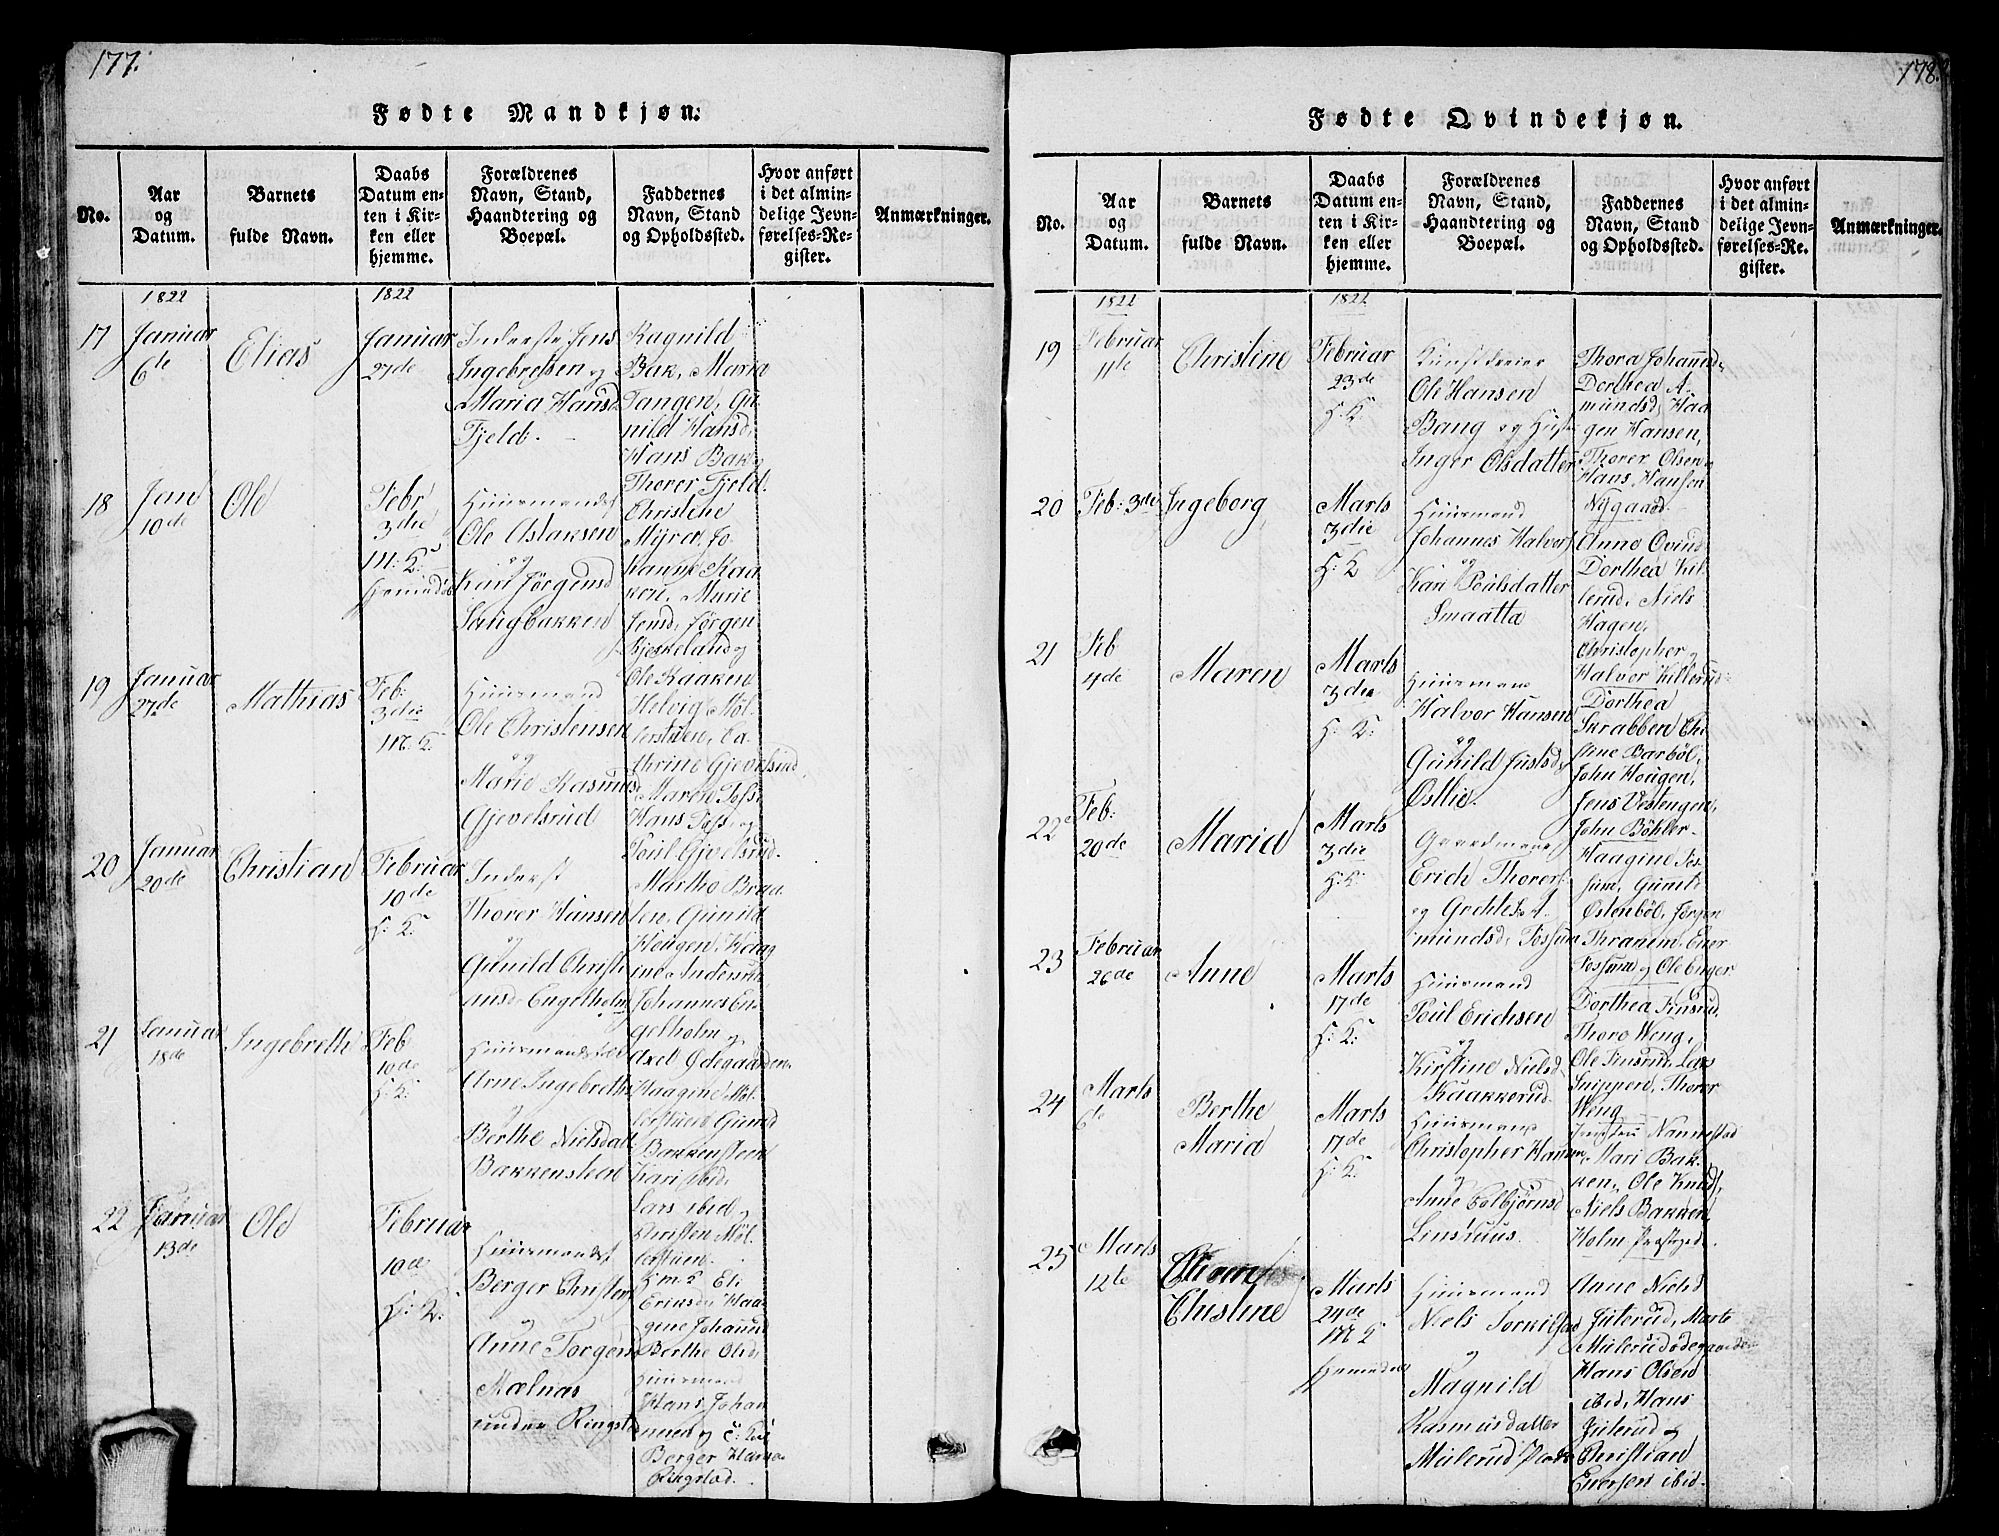 177.
Fødte Mandkjøn.
No.
Aar og Datum.
Barnets fulde Navn.
Daabs Datum enten i Kirken eller hjemme.
Forældrenes Navn, Stand, Haandtering og Boepæl.
Faddernes Navn, Stand og Opholdssted.
Hvor anført i det almindelige Jevnførelses-Register.
Anmærkninger.
1822
1822
17
Januar
6te
Elias
Januar
27de
Inderste Jens
Ingebretsen og
Maria Hansd
Fjeld.
Ragnild
Bak, Maria
Tangen, Gu
nild Hansd,
Hans Bak og
Thorer Fjeld.
18
Jan
10de
Ole
Febr
3die
M: K:
Huusmand
Ole Aslaksen
og
Kari Jørgensd
Langbakken
Christine
Myra, Jo
Marie
Jensd, Jørgen
og
Ole Kaaken
19
Januar
27de
Mathias
Feb:
3die
M: K:
Huusmand
Ole Christensen
og
Marie Rasmusd
Gjevelsrud
Helvig Møl
lerstuen, Ca
thrine Gjevelsrud,
Maren Foss,
Hans Foss og
Poul Gjevelsrud.
20
Januar
20de
Christian
Februar
10de
H: K:
Inderst
Thorer Hansen
og
Gunild Christi
ansd. Engelholm
Martha Braa
ten, Gunild
Hougen, Haag
ine Andersrud
Johannes En
gelholm og
Axel Ødegaarden
21
Januar
18de
Ingebreth
Feb
10de
H: K:
Arne Ingebreths
og
Berthe Nielsdatt
Bakkensteen
Haagine Møl
lerstuen Gunild
Bakkensteen
Kari ibid,
Lars ibid og
Christen Møl
lerstuen.
22
Januar
13de
Ole
Februar
10de
H: K:
Huusmand
Berger Christens
og
Anne Torgersd
Mælnas
under Ringstad
Eli
Eriksd, Haa
gine Johannsd
Berthe Olsd,
Huusmand
Hans Johan
nsen og
Berger
Ringstad.
178.
Fødte Qvindekjøn.
No.
Aar og Datum.
Barnets fulde Navn.
Daabs Datum enten i Kirken eller hjemme.
Forældrenes Navn, Stand, Haandtering og Boepæl.
Faddernes Navn, Stand og Opholdssted.
Hvor anført i det almindelige Jevnførelses-Register.
Anmærkninger.
1822
1822
19
Februar
11te
Christine
Februar
23de
H: K:
Ole Hansen
Bang og
Inger Olsdatter
Thora Johannsd,
Dorthea A-
mundsd, Haa
gen Hansen,
Thorer Olsen og
Hans Hansen
Nygaard.
20
Feb: 3de
Ingeborg
Marts
3die
H: K
Huusmand
Johannes Halvors
og
Kari Poulsdatter
Smaatta
Anne Qvind
Dorthea Kil
lerud, Niels
Hagen,
Christopher og
Halvor Killerud
21
Feb
4de
Maren
Marts
3die
H: K:
Huusmand
Halvor Hansen
og
Gunild Justsd
Østlie.
Dorthea
Skrabben Chri
stine Barbøl,
John Hougen,
Jens Vestengen,
John Bøhler
22
Feb:
20de
Maria
Marts
3die
H: K:
Gaardmand
Erich Thorers
og Grethe A
mundsd, Fossum
Haagine Fos
sum, Gunild
Østenbøl, Jørgen
Thranem, Ener
Fossum og Ole Enger
23
Februar
26de
Anne
Marts
17de
H: K:
Huusmand
Poul Erichsen
og
Kirstine Nielsd
Kaakkerud
Dorthea Finsrud,
Thoro Weng,
Ole Finsrud, Lars
Snippen, Thorer
Weng
24
Marts
6te
Berthe
Maria
Marts
17de
H: K:
Huusmand
Christopher Hansen
og
Anne Colbjørnsd
Linshuus.
Nannestad
Mari Bak
ken, Ole Knuds,
Niels Bakken,
Holm Præstegjed.
25
Marts
12te
Christine
Marts
24de
M K
Huusmand
Niels Torkilsen
og
Magnild
Rasmusdatter
Mulerud
Anne Nielsd
Julerud, Marte
Mulerudødegaarden
Hans Olsen
ibid, Hans
Julerud og
Christian
Enersen ibid